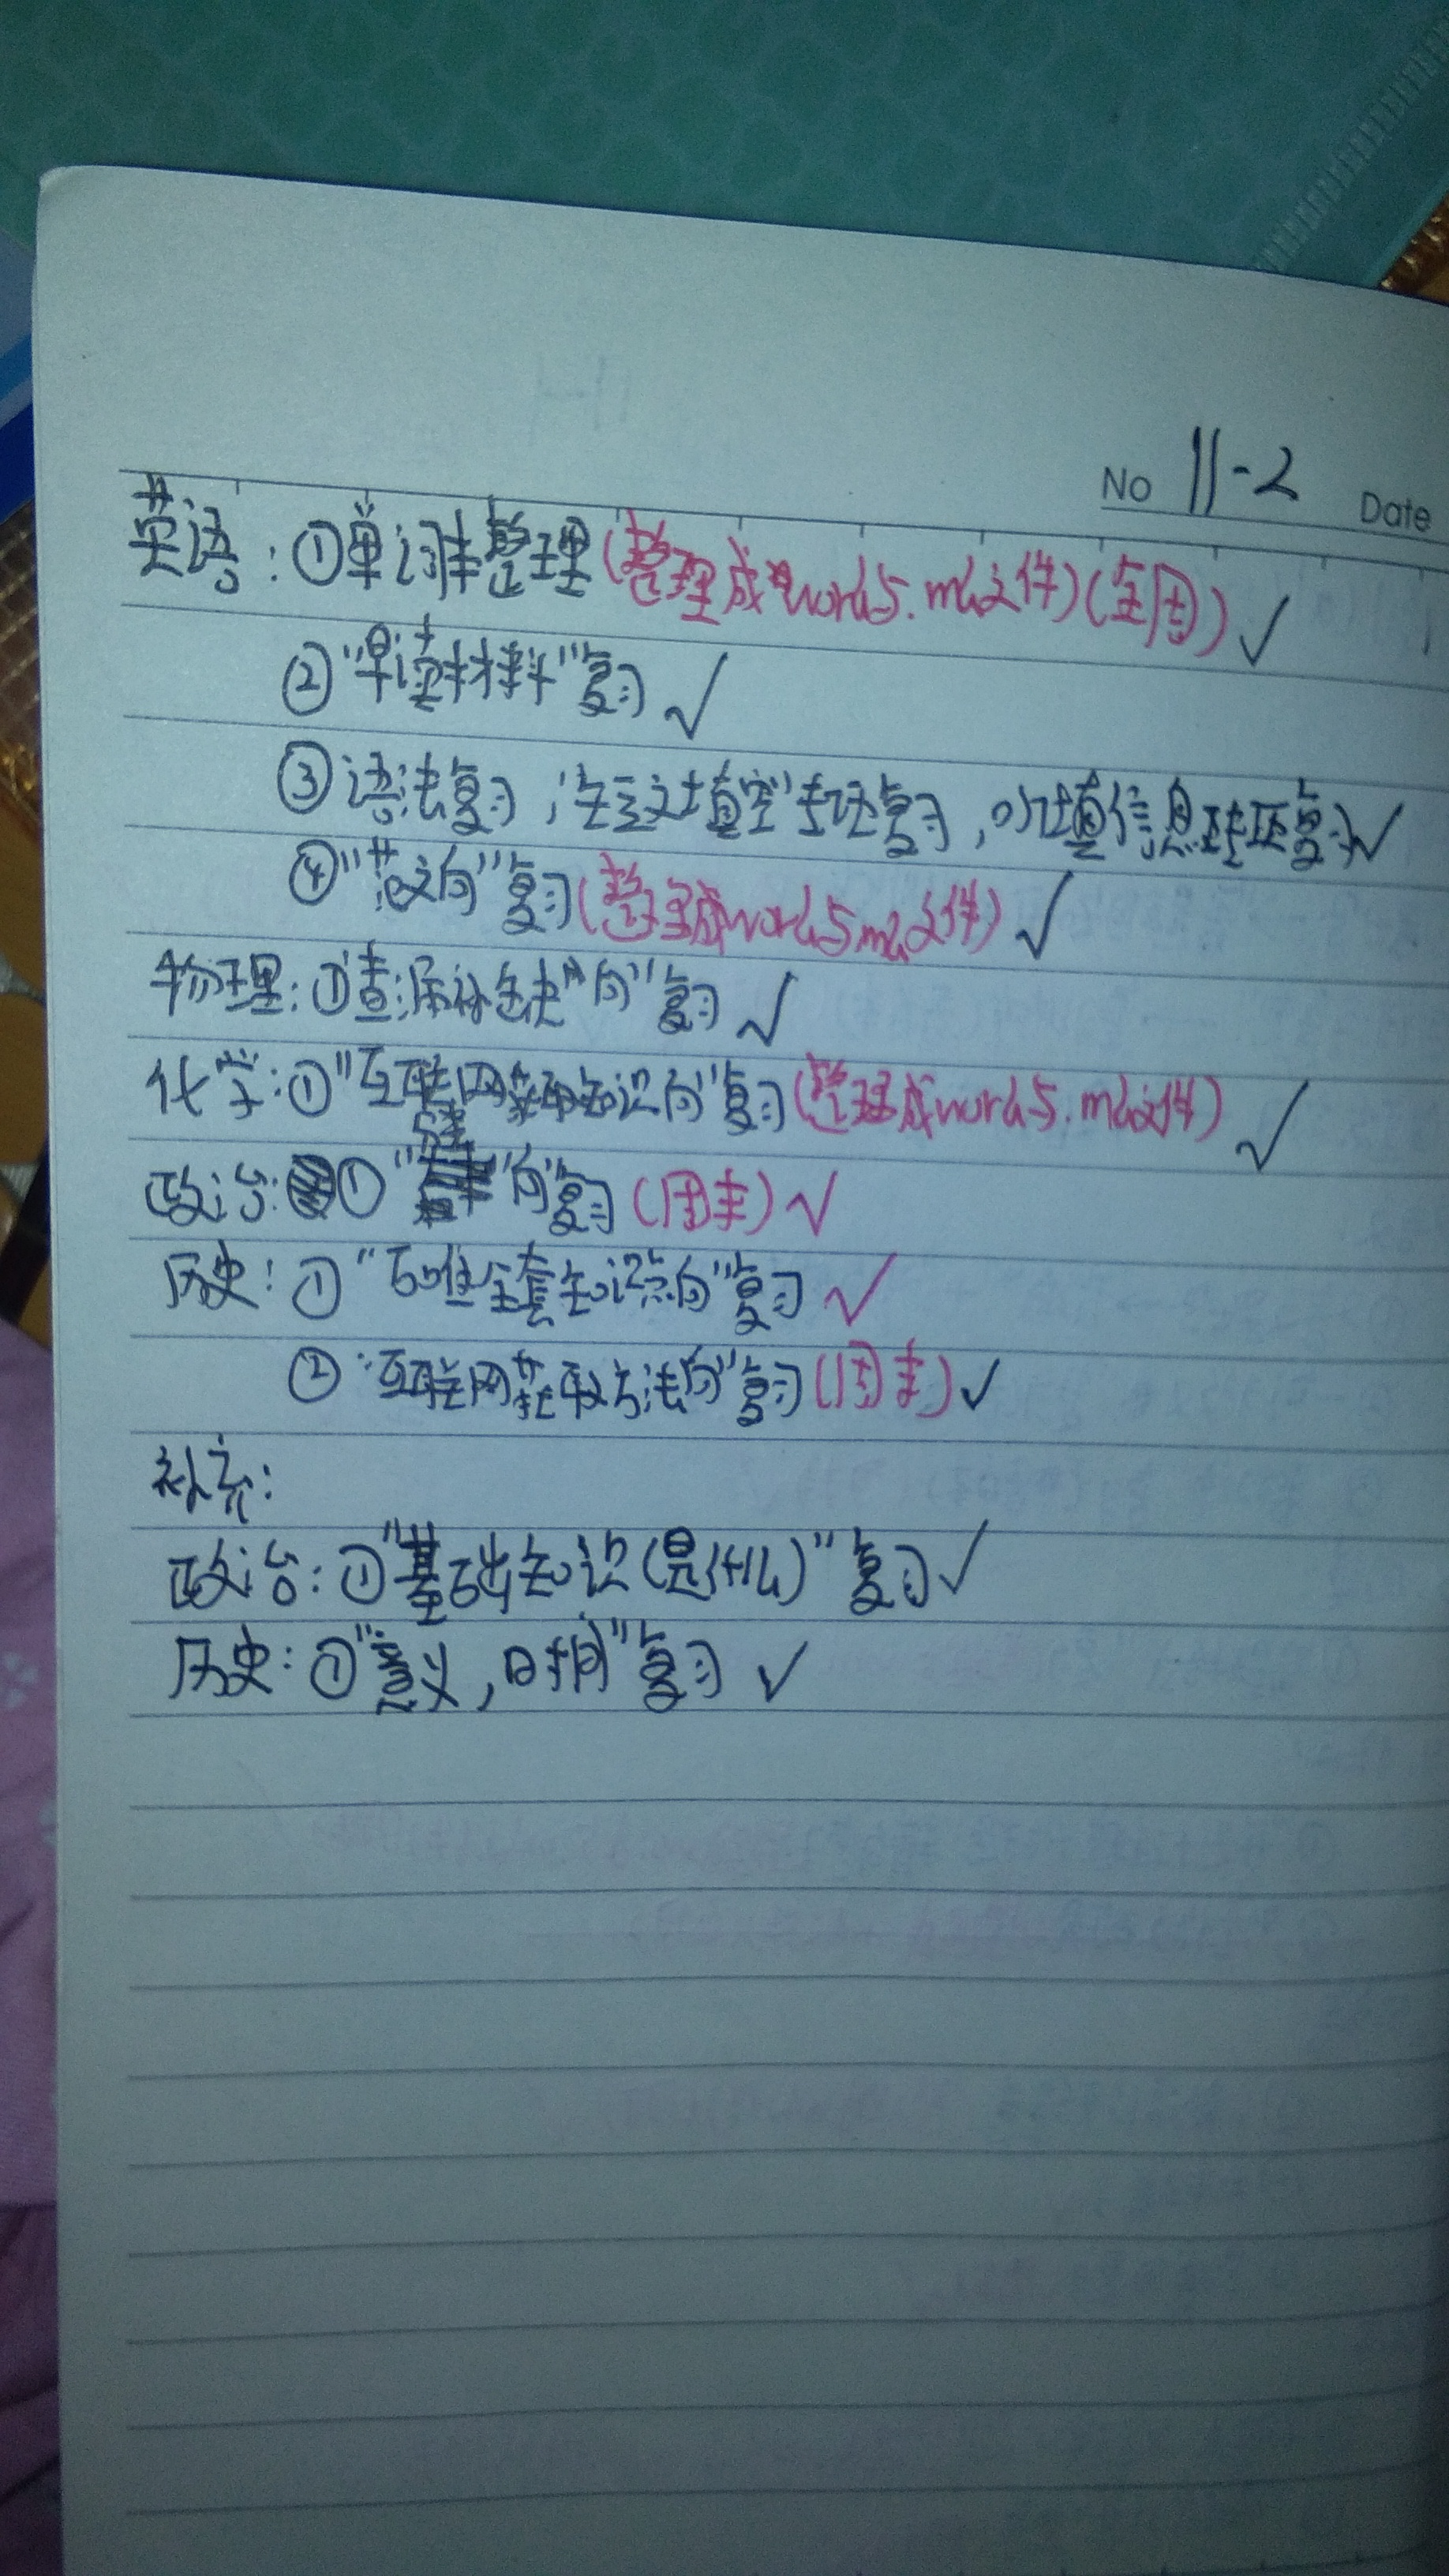 No 11-2 Date
英语:①单词整理(整理成words.md文件)(全周)✓
②"早读材料"复习✓
③语法复习,"任务型填空"专项复习,听填信息专项复习✓
④"范文向"复习(整理成words.md文件)✓
物理:①查漏补缺"向"复习✓
化学:①"互联网获取知识向"复习(整理成words.md文件)✓
政治:①向"复习(周末)✓
历史:①"百唯全套知识点向"复习✓
②"互联网获取方法向"复习(周末)✓
补充:
政治:①"基础知识(是什么)"复习✓
历史:①"意义,时间"复习✓